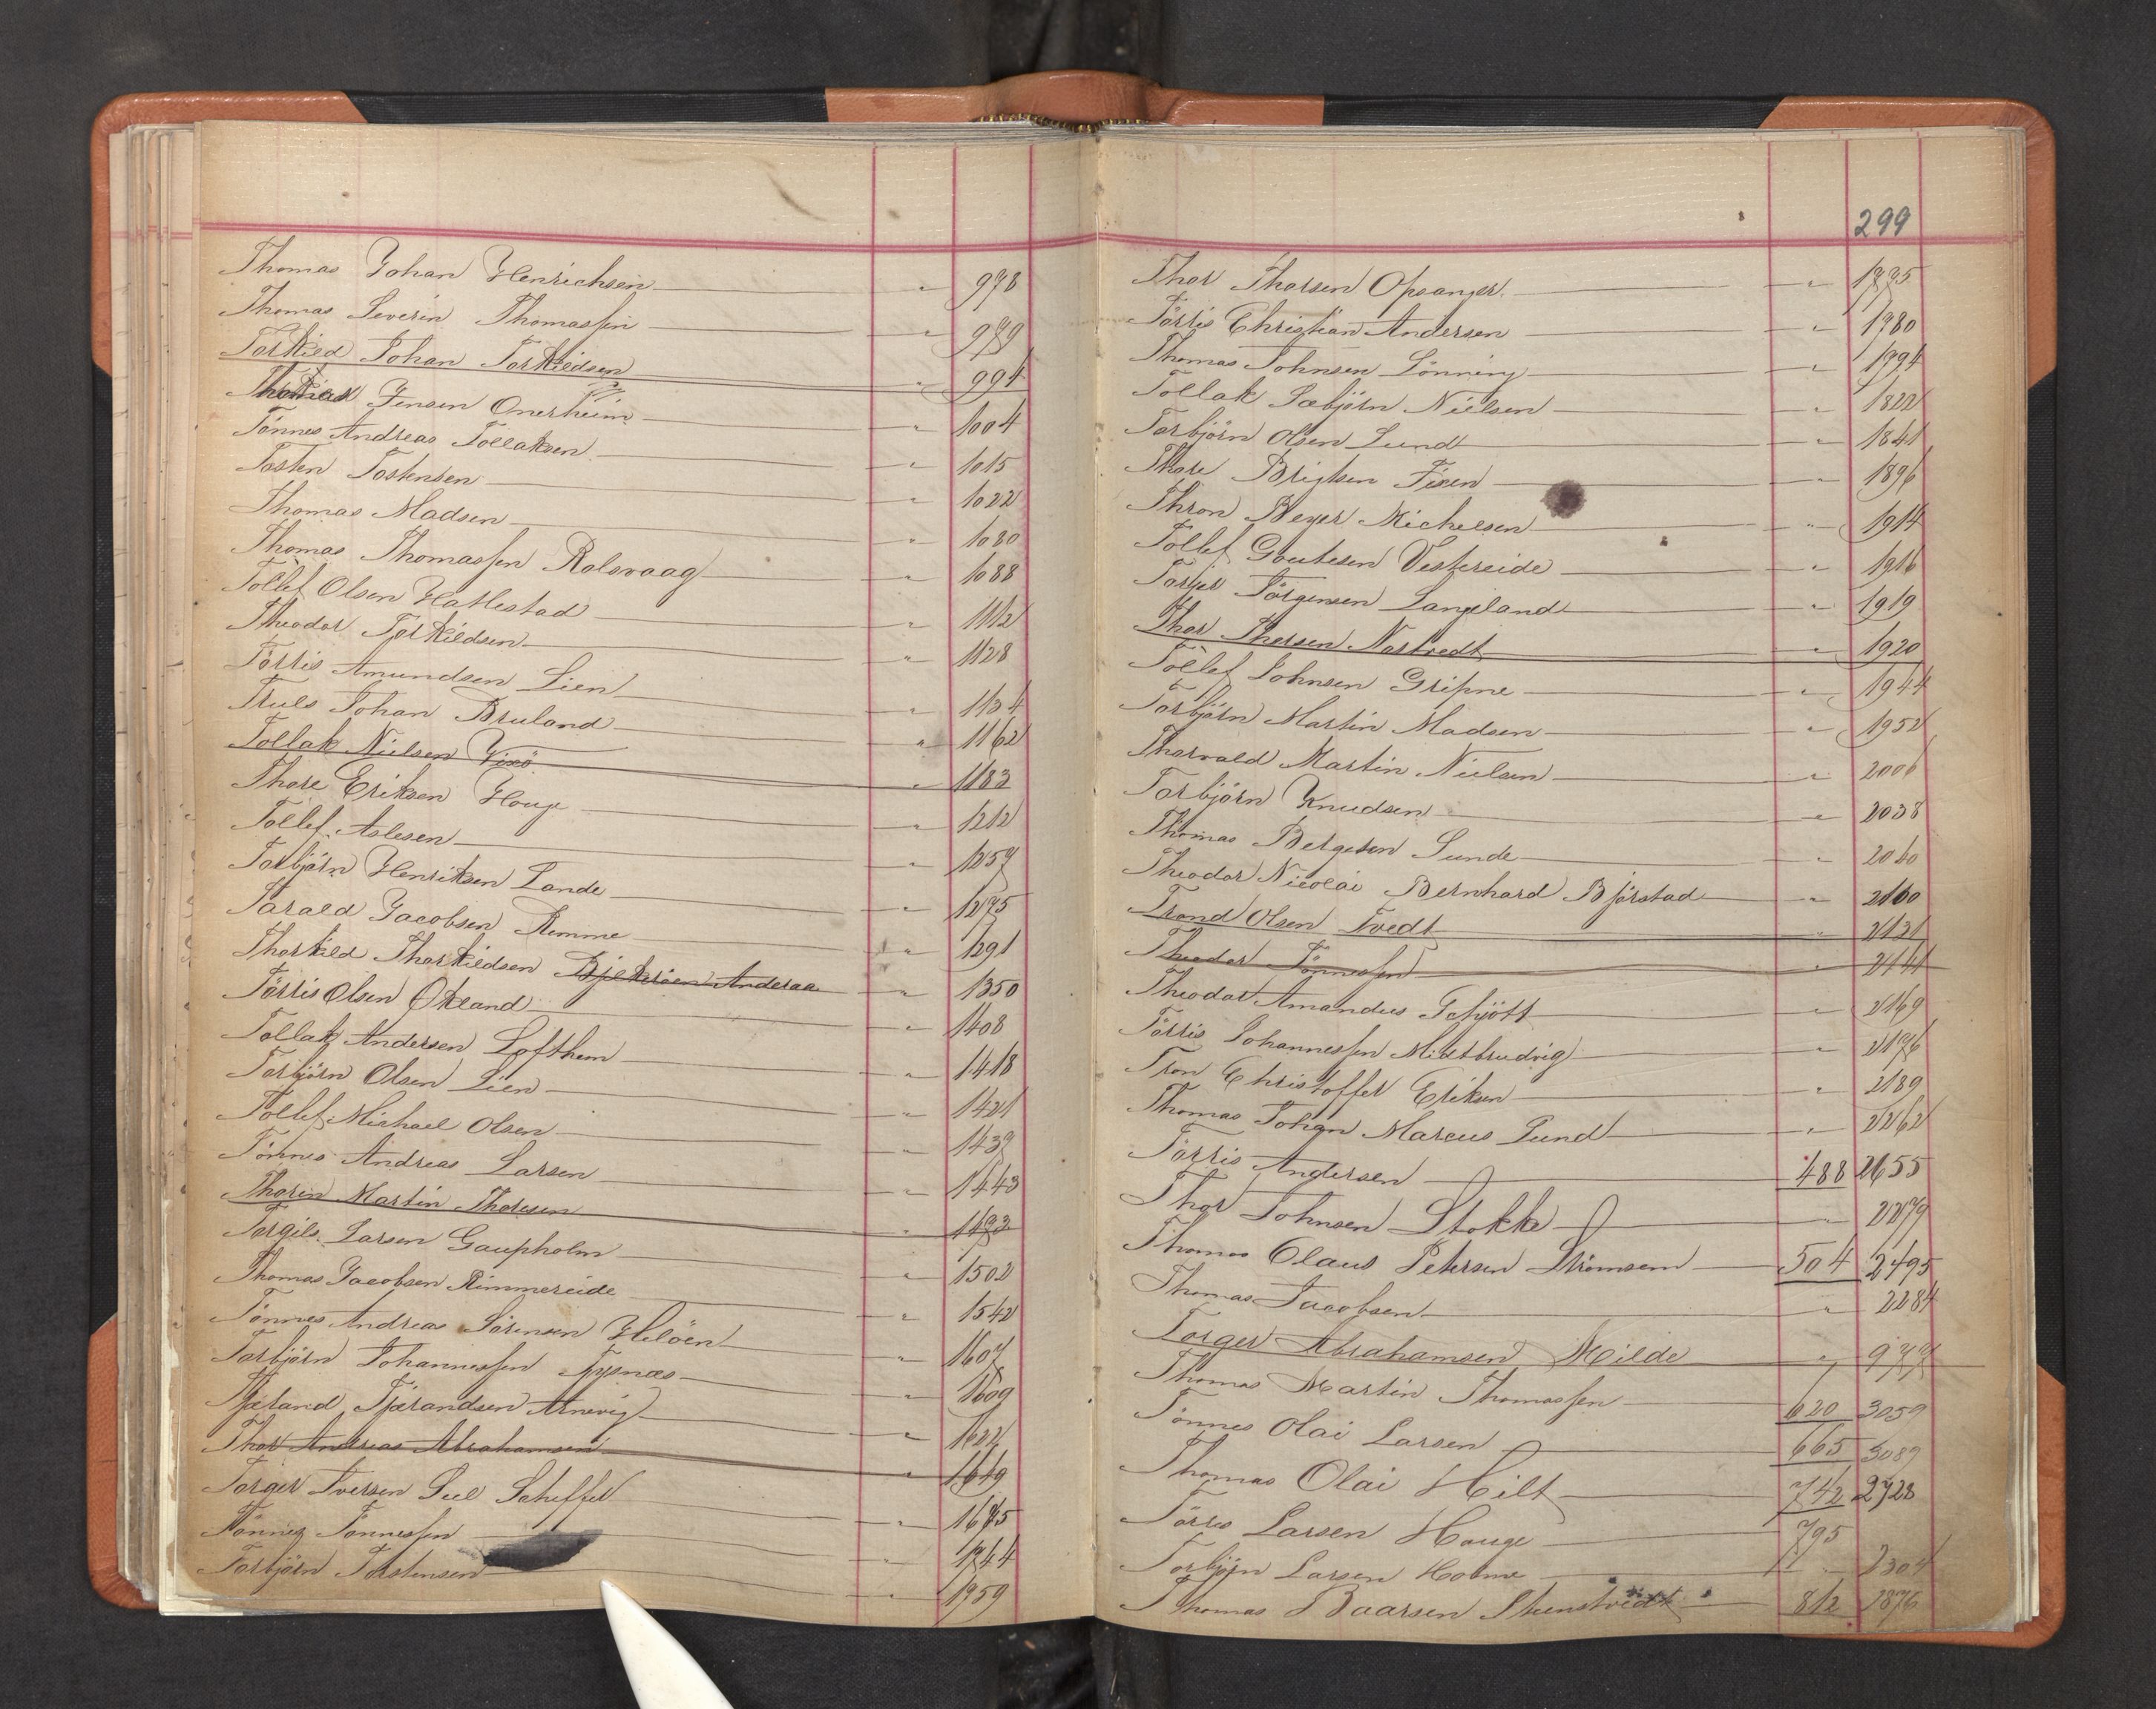 Thomas Johan Henrichsen " 978
Thomas Severin Thomassen " 979
Torkild Johan Torkildsen " 994
Jensen Onerheim " 1004
Tönnes Andreas Tollaksen " 1015
Tosten Tostensen " 1022
Thomas Madsen " 1080
Thomas Thomassen Rolsvaag " 1088
Tollef Olsen Hatlestad " 1112
Theodor Torkildsen " 1128
Törris Amundsen Lien " 1134
Truls Johan Bruland " 1162
Tollak Nielsen Vixö " 1183
Thore Eriksen Houge " 1212
Tollef Aslesen " 1257
Torbjörn Henriksen Lande " 1275
Tarald Jacobsen Remme " 1291
Thorkild Thorkildsen Bjelkeröen Anderaa " 1350
Törris Olsen Økland " 1408
Tollak Andersen Lofthem " 1418
Torbjörn Olsen Lien " 1421
Tollef Michael Olsen " 1439
Tönnes Andreas Larsen " 1443
Thorin Martin Thoresen " 1493
Torgils Larsen Gaupholm " 1502
Thomas Jacobsen Rimmereide " 1542
Tönnes Andreas Sörensen Helöen " 1607
Torbjörn Johannessen Tysnæs " 1609
Tjærand Tjærandsen Arnevig " 1622
Thor Andreas Abrahamsen " 1649
Torger Iversen Scheffel " 1675
Tönnes Tönnessen " 1744
Torbjörn Tostensen " 1759
299
Thor Thorsen Opsanger " 1775
Törris Christian Andersen " 1780
Thomas Johnsen Lönning " 1794
Tollak Sæbjörn Nielsen " 1822
Torbjörn Olsen Lund " 1841
Thore Brigtsen Fixen " 1896
Thron Beyer Michelsen " 1914
Tollef Goutesen Vestreide " 1916
Torger Törgensen Langeland " 1919
Thor Thorsen Nostvedt " 1920
Tollef Johnsen Gripne " 1944
Torbjörn Martin Madsen " 1952
Thorvald Martin Nielsen " 2006
Torbjörn Knudsen " 2038
Thomas Bergesen Sunde " 2060
Theodor Nicolai Bernhard Björstad " 2100
Trond Olsen Tvedt " 2131
Theodor Tönnessen " 2141
Theodor Amandus Schjött " 2169
Törris Johannessen Midtbrudvig " 2176
Tron Christoffer Eriksen " 2189
Thomas Johan Marcus Lund " 2262
Törris Andersen 488 2655
Thor Johnsen Stokke " 2279
Thomas Olaus Petersen Strömsem 504 2495
Thomas Jacobsen " 2284
Torger Abrahamsen Milde " 977
Thomas Martin Thomassen 620 3059
Tönnes Olai Larsen 665 3089
Thomas Olai Hilt 742 2728
Törres Larsen Houge 795
Torbjörn Larsen Holme " 2304
Thomas Baarsen Stenstvedt 812 2876